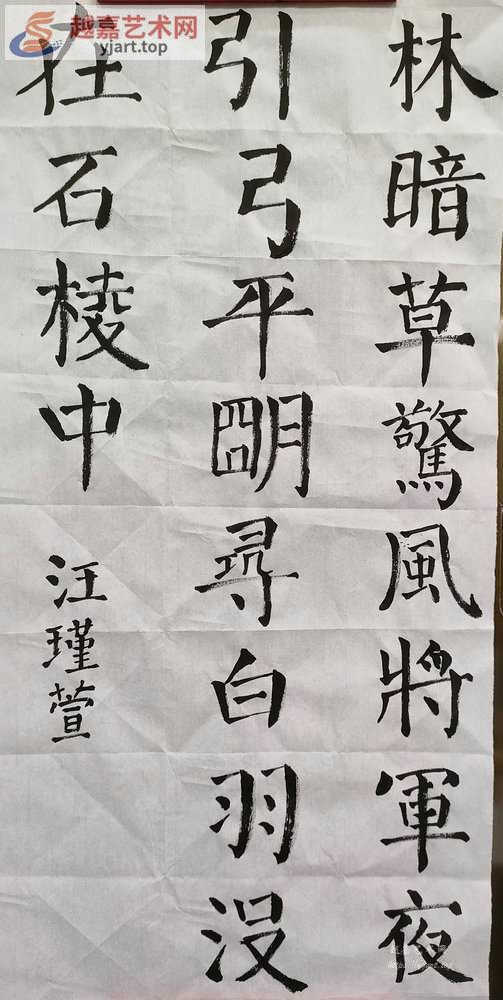 越嘉艺术网
yjart.top
林暗草驚風將軍夜
引弓平朙尋白羽没
在石棱中
汪瑾萱